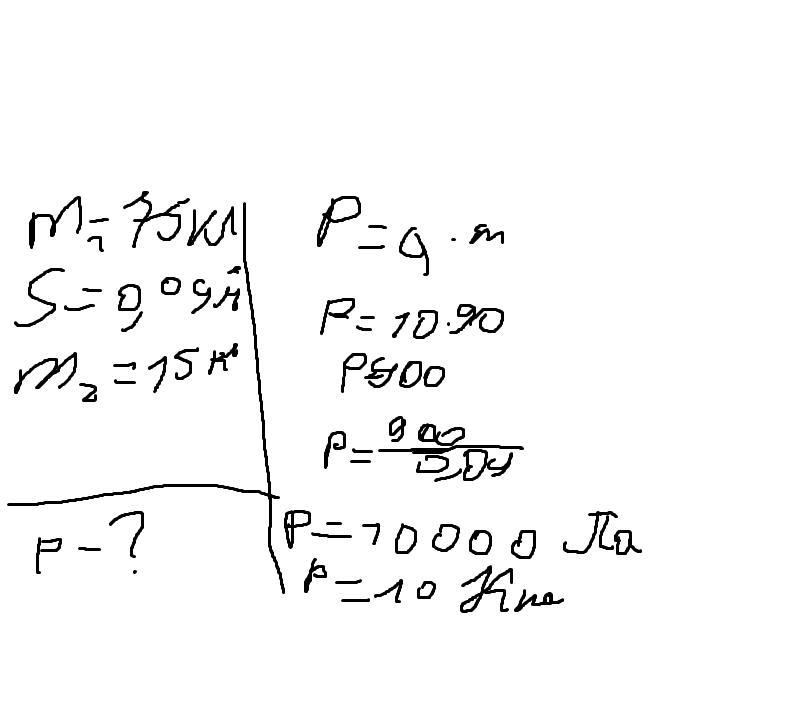 m₁=75кг
S=0,09м²
m₂=15кг
P-?
P=g·m
P=10·90
P=900
P=900/0,09
P=10000 Па
P=10 Кпа